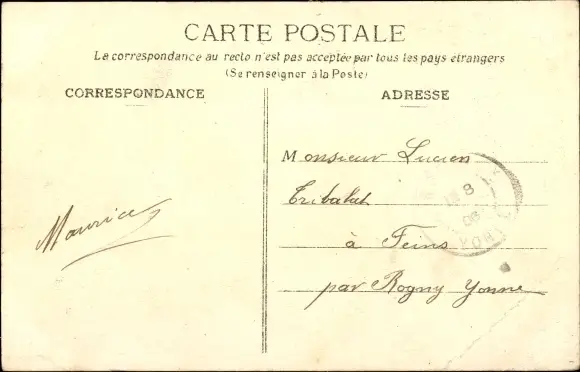 CARTE POSTALE
La correspondance au recto n'est pas acceptée par tous les pays étrangers
(Se renseigner à la Poste)
CORRESPONDANCE
ADRESSE
Monsieur Lucien
Tribalat
à Feins
par Rogny Yonne
Maurice